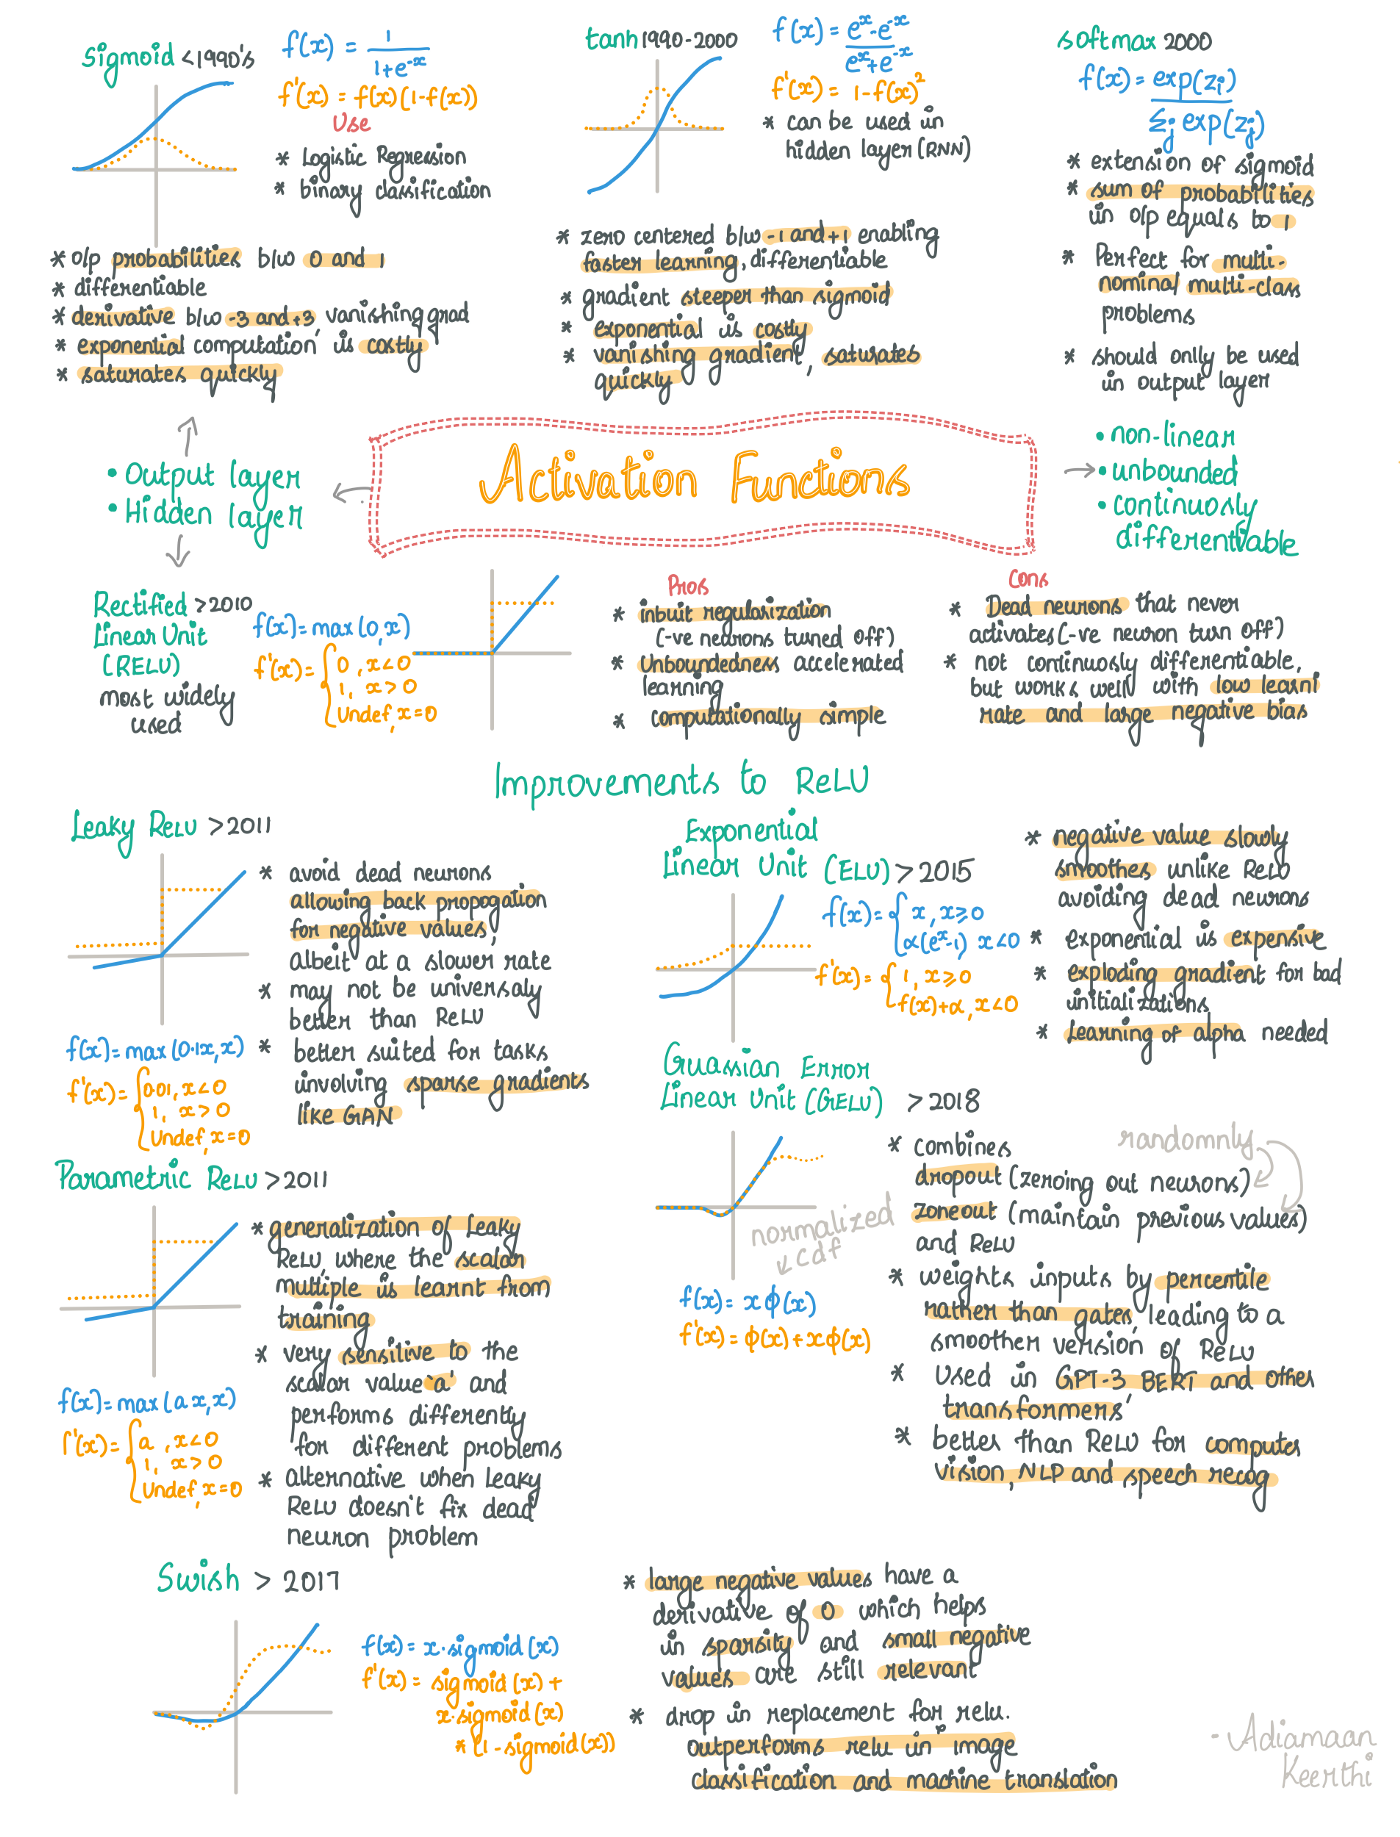 sigmoid <1990's
f(x) = 1
1+e^-x
f'(x) = f(x)(1-f(x))
Use
* Logistic Regression
* binary classification
* o/p probabilities b/w 0 and 1
* differentiable
* derivative b/w -3 and +3, vanishing grad
* exponential computation is costly
* saturates quickly
tanh 1990-2000
f(x) = e^x-e^-x
e^x+e^-x
f'(x) = 1-f(x)^2
* can be used in
hidden layer (RNN)
* zero centered b/w -1 and +1 enabling
faster learning, differentiable
* gradient steeper than sigmoid
* exponential is costly
* vanishing gradient, saturates
quickly
softmax 2000
f(x) = exp(zi)
Σj exp(zj)
* extension of sigmoid
* sum of probabilities
in o/p equals to 1
* Perfect for multi-
nominal multi-class
problems
* should only be used
in output layer
• Output layer
• Hidden layer
Activation Functions
• non-linear
• unbounded
• continuosly
differentiable
Rectified >2010
Linear Unit
(RELU)
most widely
used
f(x) = max(0,x)
f'(x) = { 0, x<0
1, x>0
Undef, x=0
Pros
* inbuit regularization
(-ve neurons turned off)
* Unboundedness accelerated
learning
* computationally simple
Cons
* Dead neurons that never
activates (-ve neuron turn off)
* not continuosly differentiable,
but works well with low learni
rate and large negative bias
Improvements to ReLU
Leaky RELU >2011
* avoid dead neurons
allowing back propogation
for negative values,
albeit at a slower rate
* may not be universaly
better than ReLU
* better suited for tasks
involving sparse gradients
like GAN
f(x) = max(0.1x,x)
f'(x) = { 0.01, x<0
1, x>0
Undef, x=0
Exponential
Linear Unit (ELU) >2015
f(x) = { x, x≥0
α(e^x-1) x<0
f'(x) = { 1, x≥0
f(x)+α, x<0
* negative value slowly
smoothes unlike ReLU
avoiding dead neurons
* exponential is expensive
* exploding gradient for bad
initializations
* Learning of alpha needed
Parametric RELU >2011
* generalization of Leaky
ReLU, where the scalar
multiple is learnt from
training
* very sensitive to the
scalar value 'a' and
performs differently
for different problems
* alternative when Leaky
ReLU doesn't fix dead
neuron problem
f(x) = max(ax,x)
f'(x) = { a, x<0
1, x>0
Undef, x=0
Guassian Error
Linear Unit (GELU) >2018
normalized
cdf
f(x) = xϕ(x)
f'(x) = ϕ(x)+xϕ(x)
randomnly
* combines
dropout (zeroing out neurons)
zoneout (maintain previous values)
and ReLU
* weights inputs by percentile
rather than gates, leading to a
smoother version of ReLU
* Used in GPT-3 BERT and other
transformers
* better than ReLU for computer
vision, NLP and speech recog
Swish >2017
f(x) = x·sigmoid(x)
f'(x) = sigmoid(x)+
x·sigmoid(x)
*(1-sigmoid(x))
* large negative values have a
derivative of 0 which helps
in sparsity and small negative
values are still relevant
* drop in replacement for relu.
outperforms relu in image
classification and machine translation
- Adiamaan
Keerthi